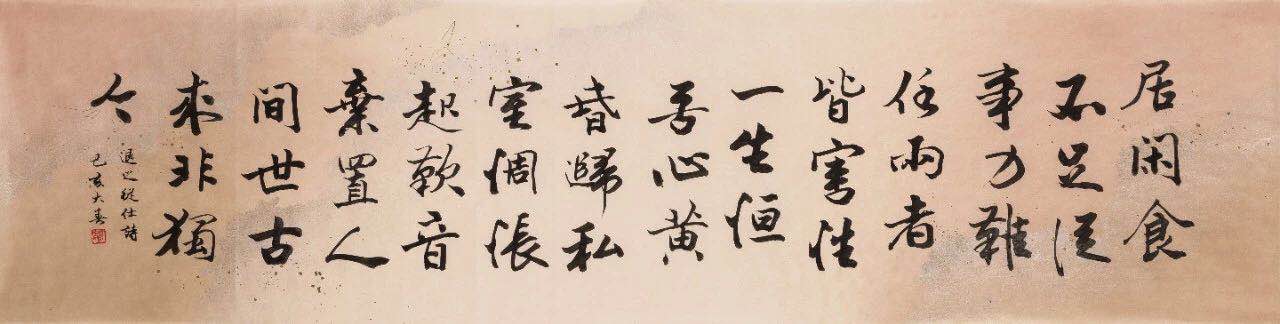 居閑食
不足從
事力難
任兩者
皆害性
一生恒
苦心黄
昏歸私
室惆悵
起歎音
棄置人
間世古
來非獨
今
退之從仕詩
己亥大春